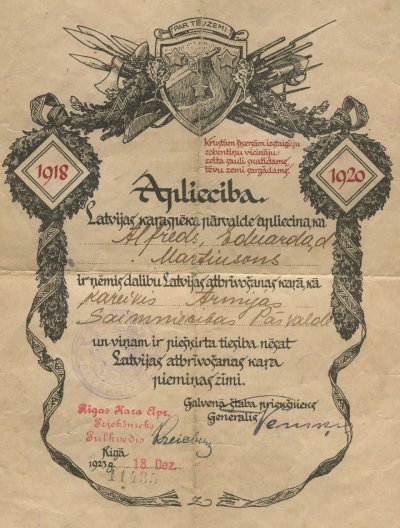 PAR TĒVZEMI
Krustām šķērsām izstaigāju
zobentiņu vicināju:
zelta sauli skatīdams,
tēvu zemi sargādams.
1918
1920
Apliecība.
Latvijas karaspēka pārvalde apliecina, ka
Alfreds, Eduarda d.
Martinsons
ir ņēmis dalību Latvijas atbrīvošanas karā, kā
kareivis Armijas
Saimniecības Pārvaldē
un viņam ir piešķirta tiesība nēsāt
Latvijas atbrīvošanas kara
piemiņas zīmi.
Galvenā štāba priekšnieks
Ģenerālis
Rīgas Kara Apr.
Priekšnieks
Pulkvedis
Rīgā
1923.g. 18 Dez.
11435